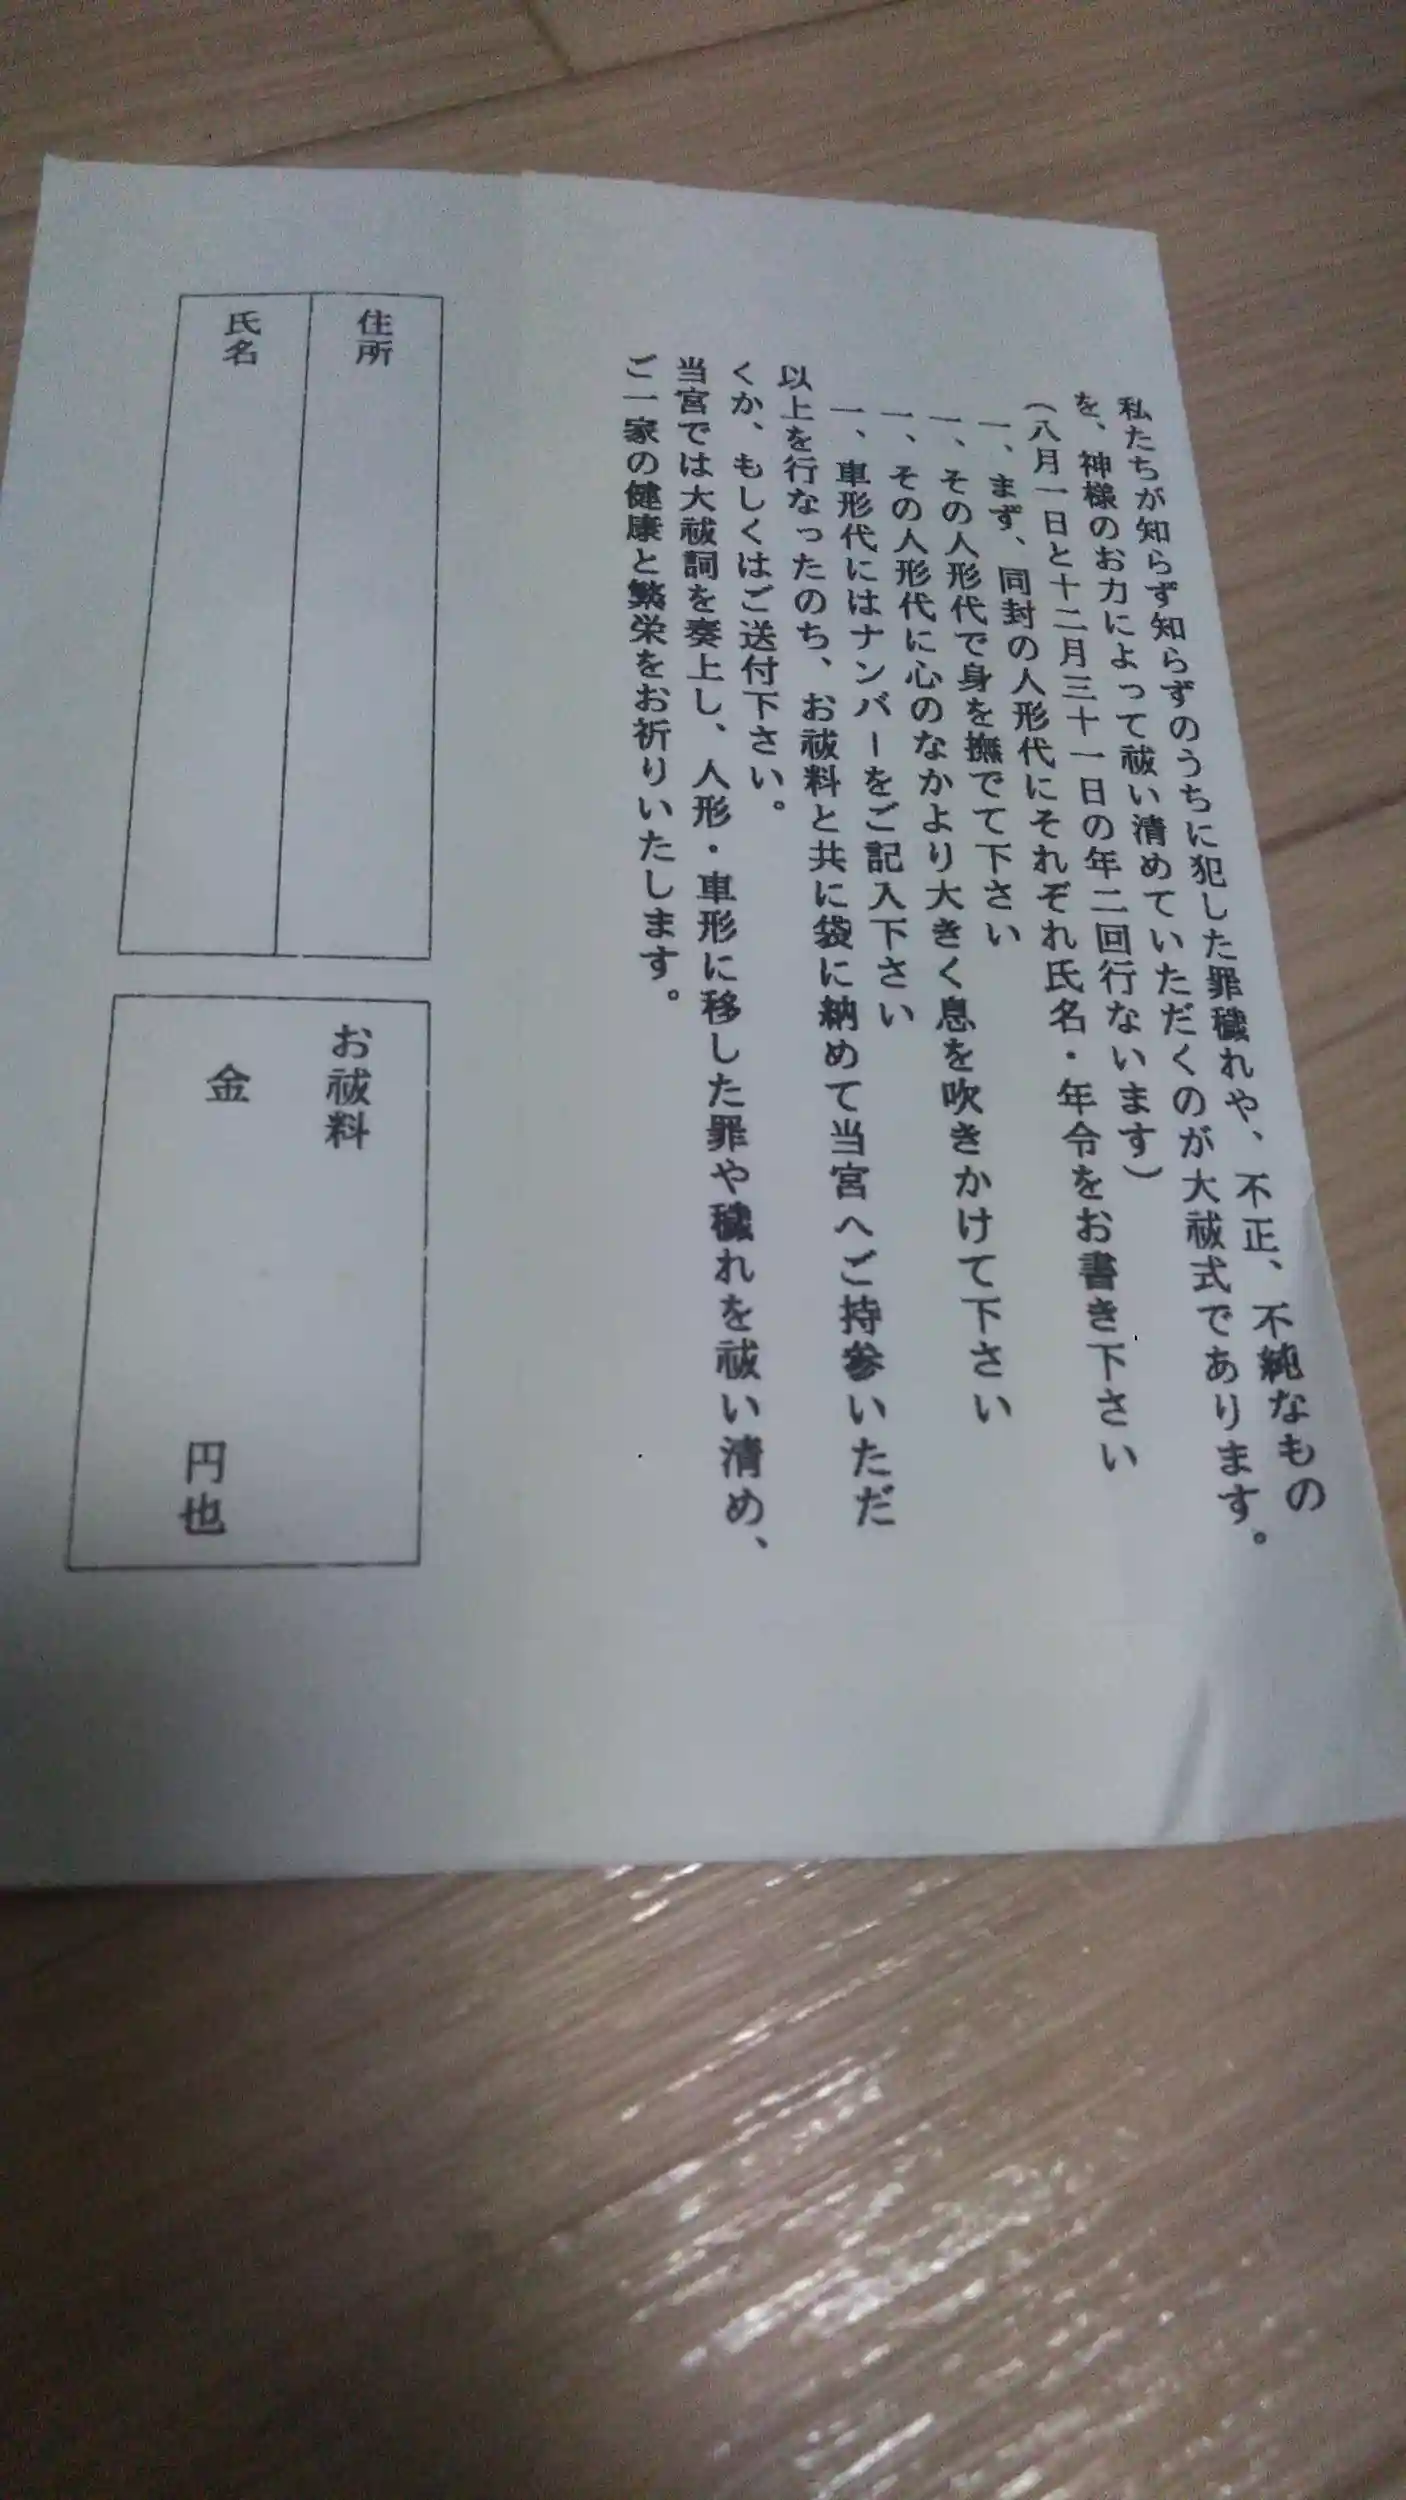 私たちが知らず知らずのうちに犯した罪穢れや、不正、不純なもの
を、神様のお力によって祓い清めていただくのが大祓式であります。
(八月一日と十二月三十一日の年二回行ないます)
一、まず、同封の人形代にそれぞれ氏名・年令をお書き下さい
一、その人形代で身を撫でて下さい
一、その人形代に心のなかより大きく息を吹きかけて下さい
一、車形代にはナンバーをご記入下さい
以上を行なったのち、お祓料と共に袋に納めて当宮へご持参いただ
くか、もしくはご送付下さい。
当宮では大祓詞を奏上し、人形・車形に移した罪や穢れを祓い清め、
ご一家の健康と繁栄をお祈りいたします。
住所
氏名
お祓料
金 円也